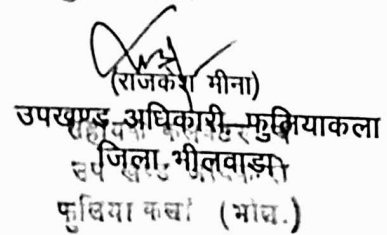 (राजकेश मीना)
उपखण्ड अधिकारी फुलियाकला
जिला भीलवाड़ा
उप खण्ड
फुलिया कलां (भील.)